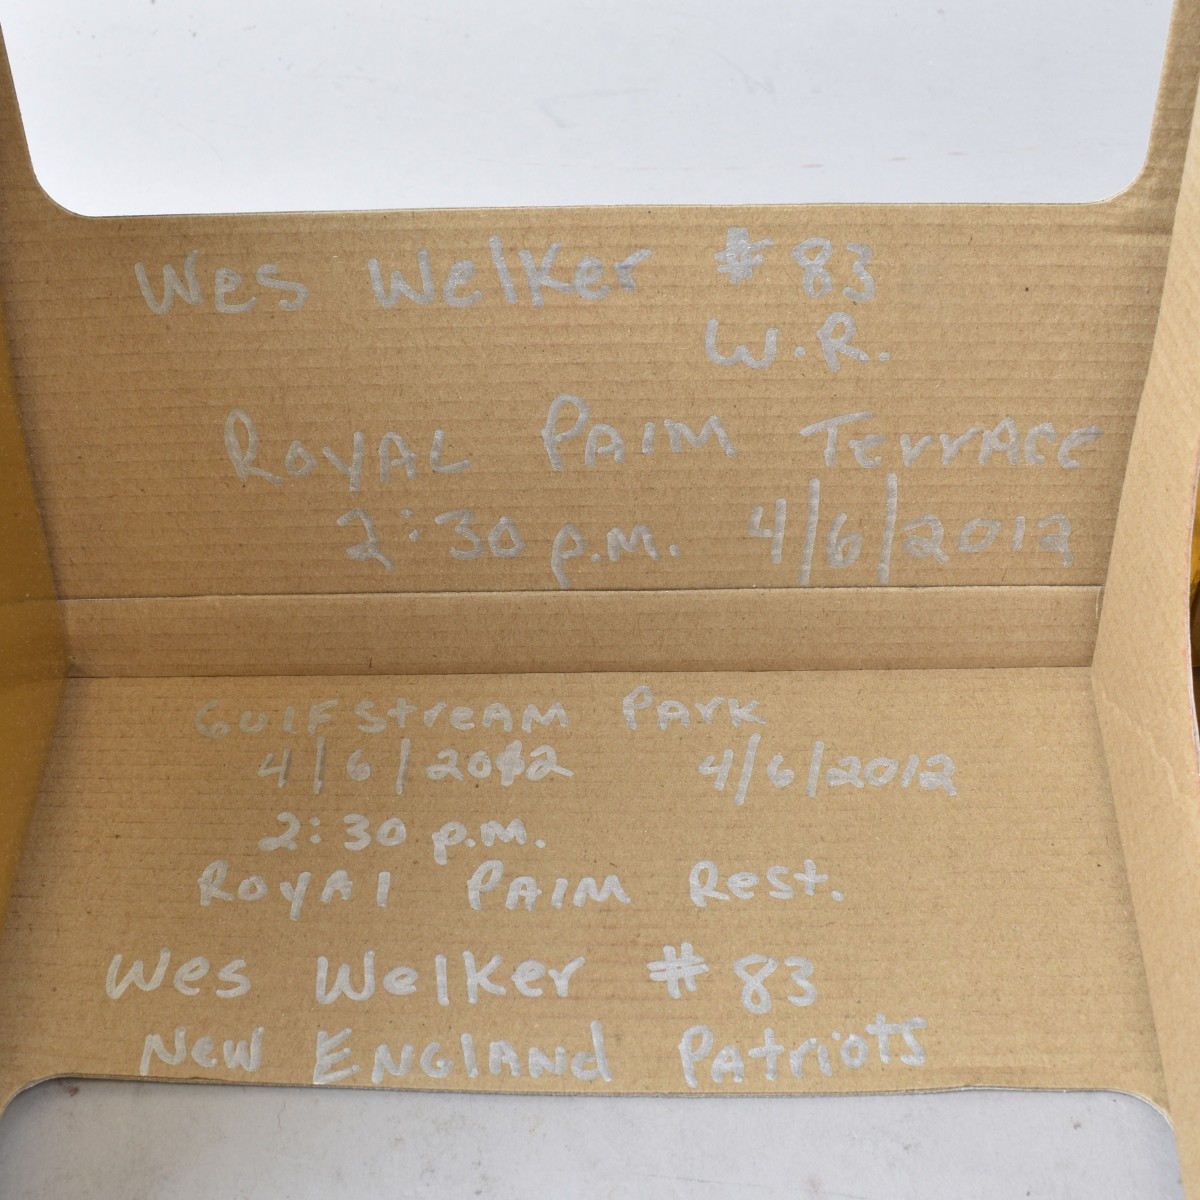 Wes Welker # 83
W.R.
ROYAL PAlM TerrACE
2:30 p.m. 4/6/2012
GulfstreAM PArk
4/6/2012 4/6/2012
2:30 p.m.
ROYAl PAlM Rest.
Wes Welker # 83
New ENGlANd Patriots